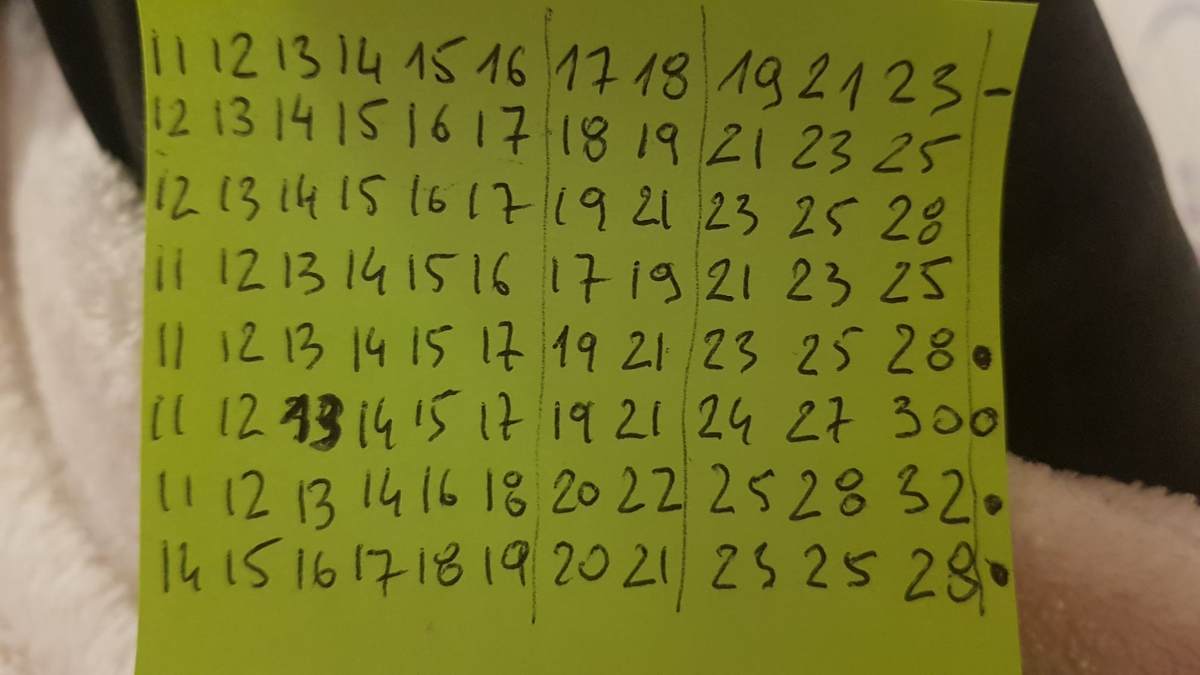 11 12 13 14 15 16 17 18 19 21 23 -
12 13 14 15 16 17 18 19 21 23 25
12 13 14 15 16 17 19 21 23 25 28
11 12 13 14 15 16 17 19 21 23 25
11 12 13 14 15 17 19 21 23 25 28 •
11 12 13 14 15 17 19 21 24 27 30 0
11 12 13 14 16 18 20 22 25 28 32 •
14 15 16 17 18 19 20 21 23 25 28 •